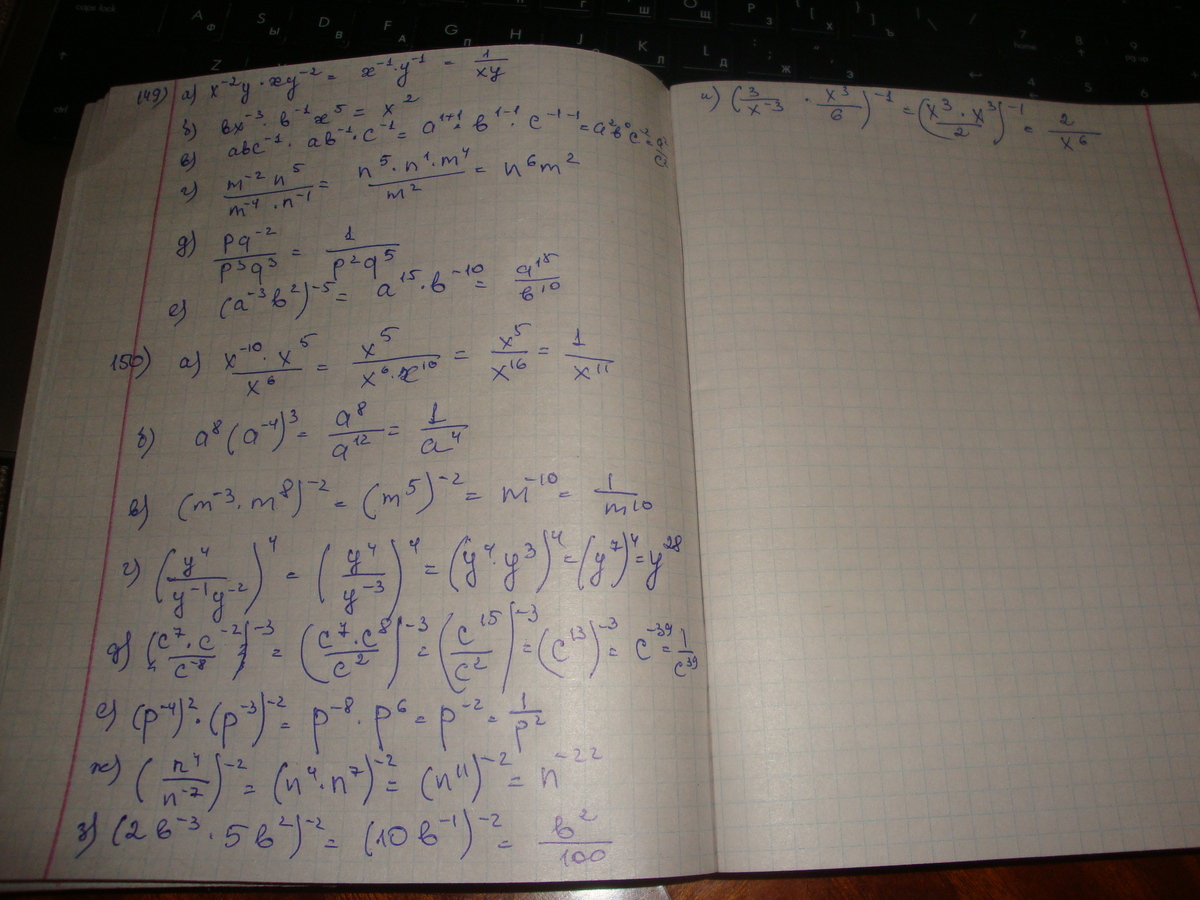 149) а) x⁻²y · xy⁻² = x⁻¹ · y⁻¹ = 1/xy
б) вx⁻³ · в⁻¹x⁵ = x²
в) aвc⁻¹ · aв⁻¹ · c⁻¹ = a¹⁺¹ · в¹⁻¹ · c⁻¹⁻¹ = a²в⁰c⁻² =
г) m⁻² n⁵ / m⁻⁴ · n⁻¹ = n⁵ · n¹ · m⁴ / m² = n⁶m²
д) pq⁻² / p³q³ = 1 / p²q⁵
е) (a⁻³в²)⁻⁵ = a¹⁵ · в⁻¹⁰ = a¹⁵ / в¹⁰
150) а) x⁻¹⁰ · x⁵ / x⁶ = x⁵ / x⁶ · x¹⁰ = x⁵ / x¹⁶ = 1 / x¹¹
б) a⁸(a⁻⁴)³ = a⁸ / a¹² = 1 / a⁴
в) (m⁻³ · m⁸)⁻² = (m⁵)⁻² = m⁻¹⁰ = 1 / m¹⁰
г) (y⁴ / y⁻¹y⁻²)⁴ = (y⁴ / y⁻³)⁴ = (y⁴ · y³)⁴ = (y⁷)⁴ = y²⁸
д) (c⁷ · c⁻² / c⁻⁸)⁻³ = (c⁷ · c⁸ / c²)⁻³ = (c¹⁵ / c²)⁻³ = (c¹³)⁻³ = c⁻³⁹ = 1 / c³⁹
е) (p⁻⁴)² · (p⁻³)⁻² = p⁻⁸ · p⁶ = p⁻² = 1 / p²
ж) (n⁴ / n⁻⁷)⁻² = (n⁴ · n⁷)⁻² = (n¹¹)⁻² = n⁻²²
з) (2в⁻³ · 5в²)⁻² = (10в⁻¹)⁻² = в² / 100
и) (3 / x⁻³ · x³ / 6)⁻¹ = (x³ · x³ / 2)⁻¹ = 2 / x⁶